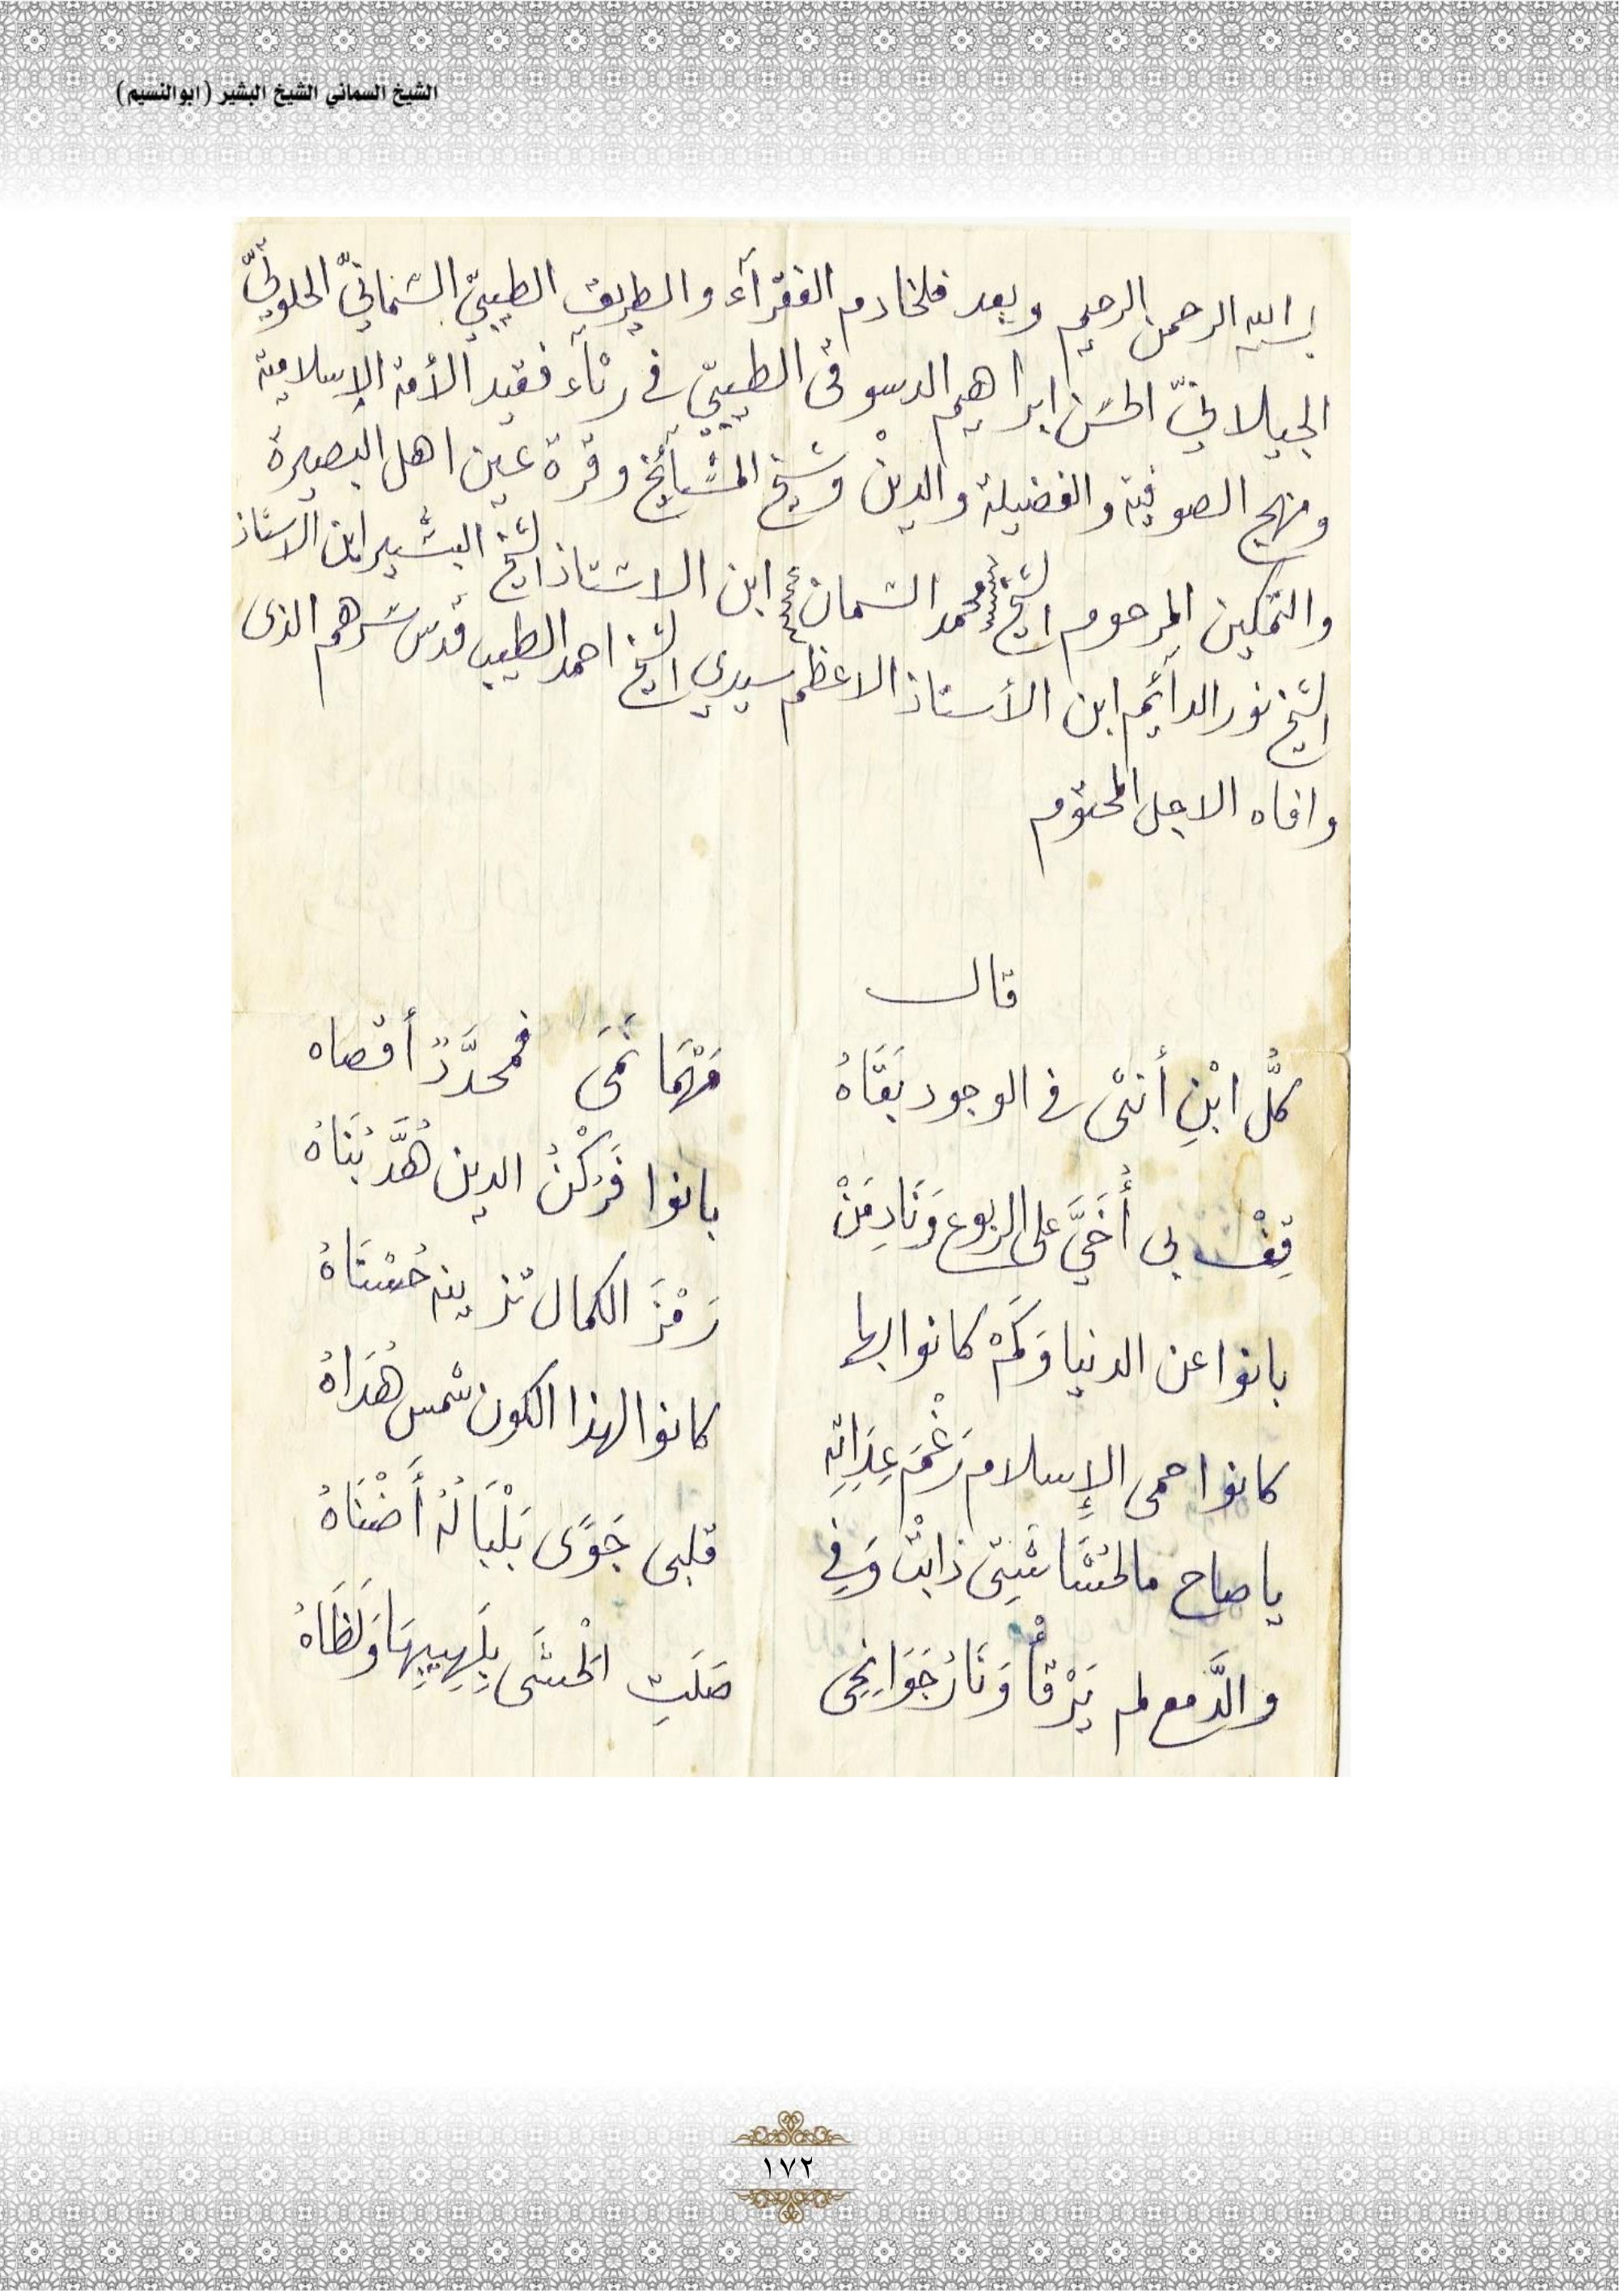 الشيخ السماني الشيخ البشير (ابوالنسيم)
بسم الله الرحمن الرحيم وبعد فلخادم الفقرآء والطريق الطيبيّ السّمانيّ الخلوتيّ
الجيلانيّ الحسَن ابراهيم الدسوقى الطيبيّ في رثآء فقيد الأمة الإسلامية
ومنهج الصوفية والفضيلة والدينْ وشيخ المشَآئخ وقرة عين اهل البصيرة
والتمكين المرحوم الشيخ محمد السّمان ابن الاستاذ الشيخ البشير ابن الاستاذ
الشيخ نور الدآئم ابن الأستاذ الاعظم سيدي الشيخ احمد الطيب قُدس سَرهم الذى
وافاه الاجل المحتوم
قال
كلُّ ابْنِ أنثى في الوجود بَقَاهُ مَهْمَا نَمَى فمحدَّدٌ أقصاه
قِفْ بى أُخَيَّ على الربوع وَنَادِ مَنْ بانوا فَرُكْنُ الدين هُدَّ بُنَاهُ
بانوا عن الدنيا وَكَمْ كانوا بها رَمْزَ الكمال تزينه حُسْنَاهُ
كانوا حمى الإسلام رَغْمَ عِدَاتِهِ كانوا لهذا الكون شمس هُدَاهُ
يا صاح مالحُشَاشَتِى ذابتْ وَفِي قلبى جَوًى بَلْبَالُهُ أَضْنَاهُ
والدَّمع لم يَرْقأْ وَنَارُ جَوَانِحِى صَلَتِ الْحَشَى بِلَهِيبِهَا وَلَظَاهُ
١٧٢